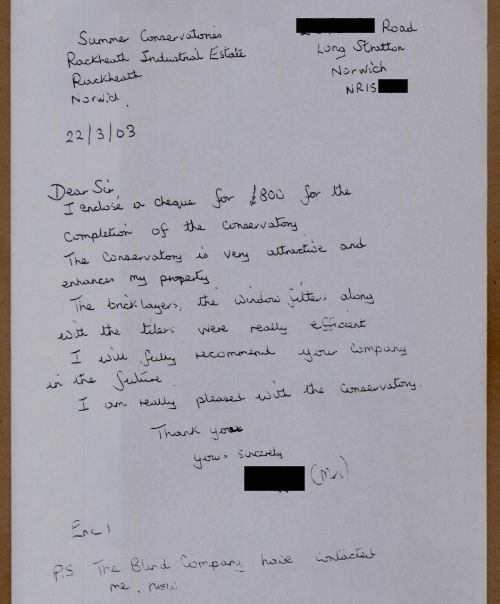 Summer Conservatories
Rackheath Industrial Estate
Rackheath
Norwich.
Road
Long Stratton
Norwich
NR15
22/3/03
Dear Sir,
I enclose a cheque for £800 for the
completion of the conservatory
The Conservatory is very attractive and
enhances my property
The bricklayers, the window fitters along
with the tilers were really efficient
I will fully recommend your Company
in the future.
I am really pleased with the conservatory.
Thank you
yours sincerely
(Mrs)
Enc 1
P.S The Blind Company have contacted
me, now